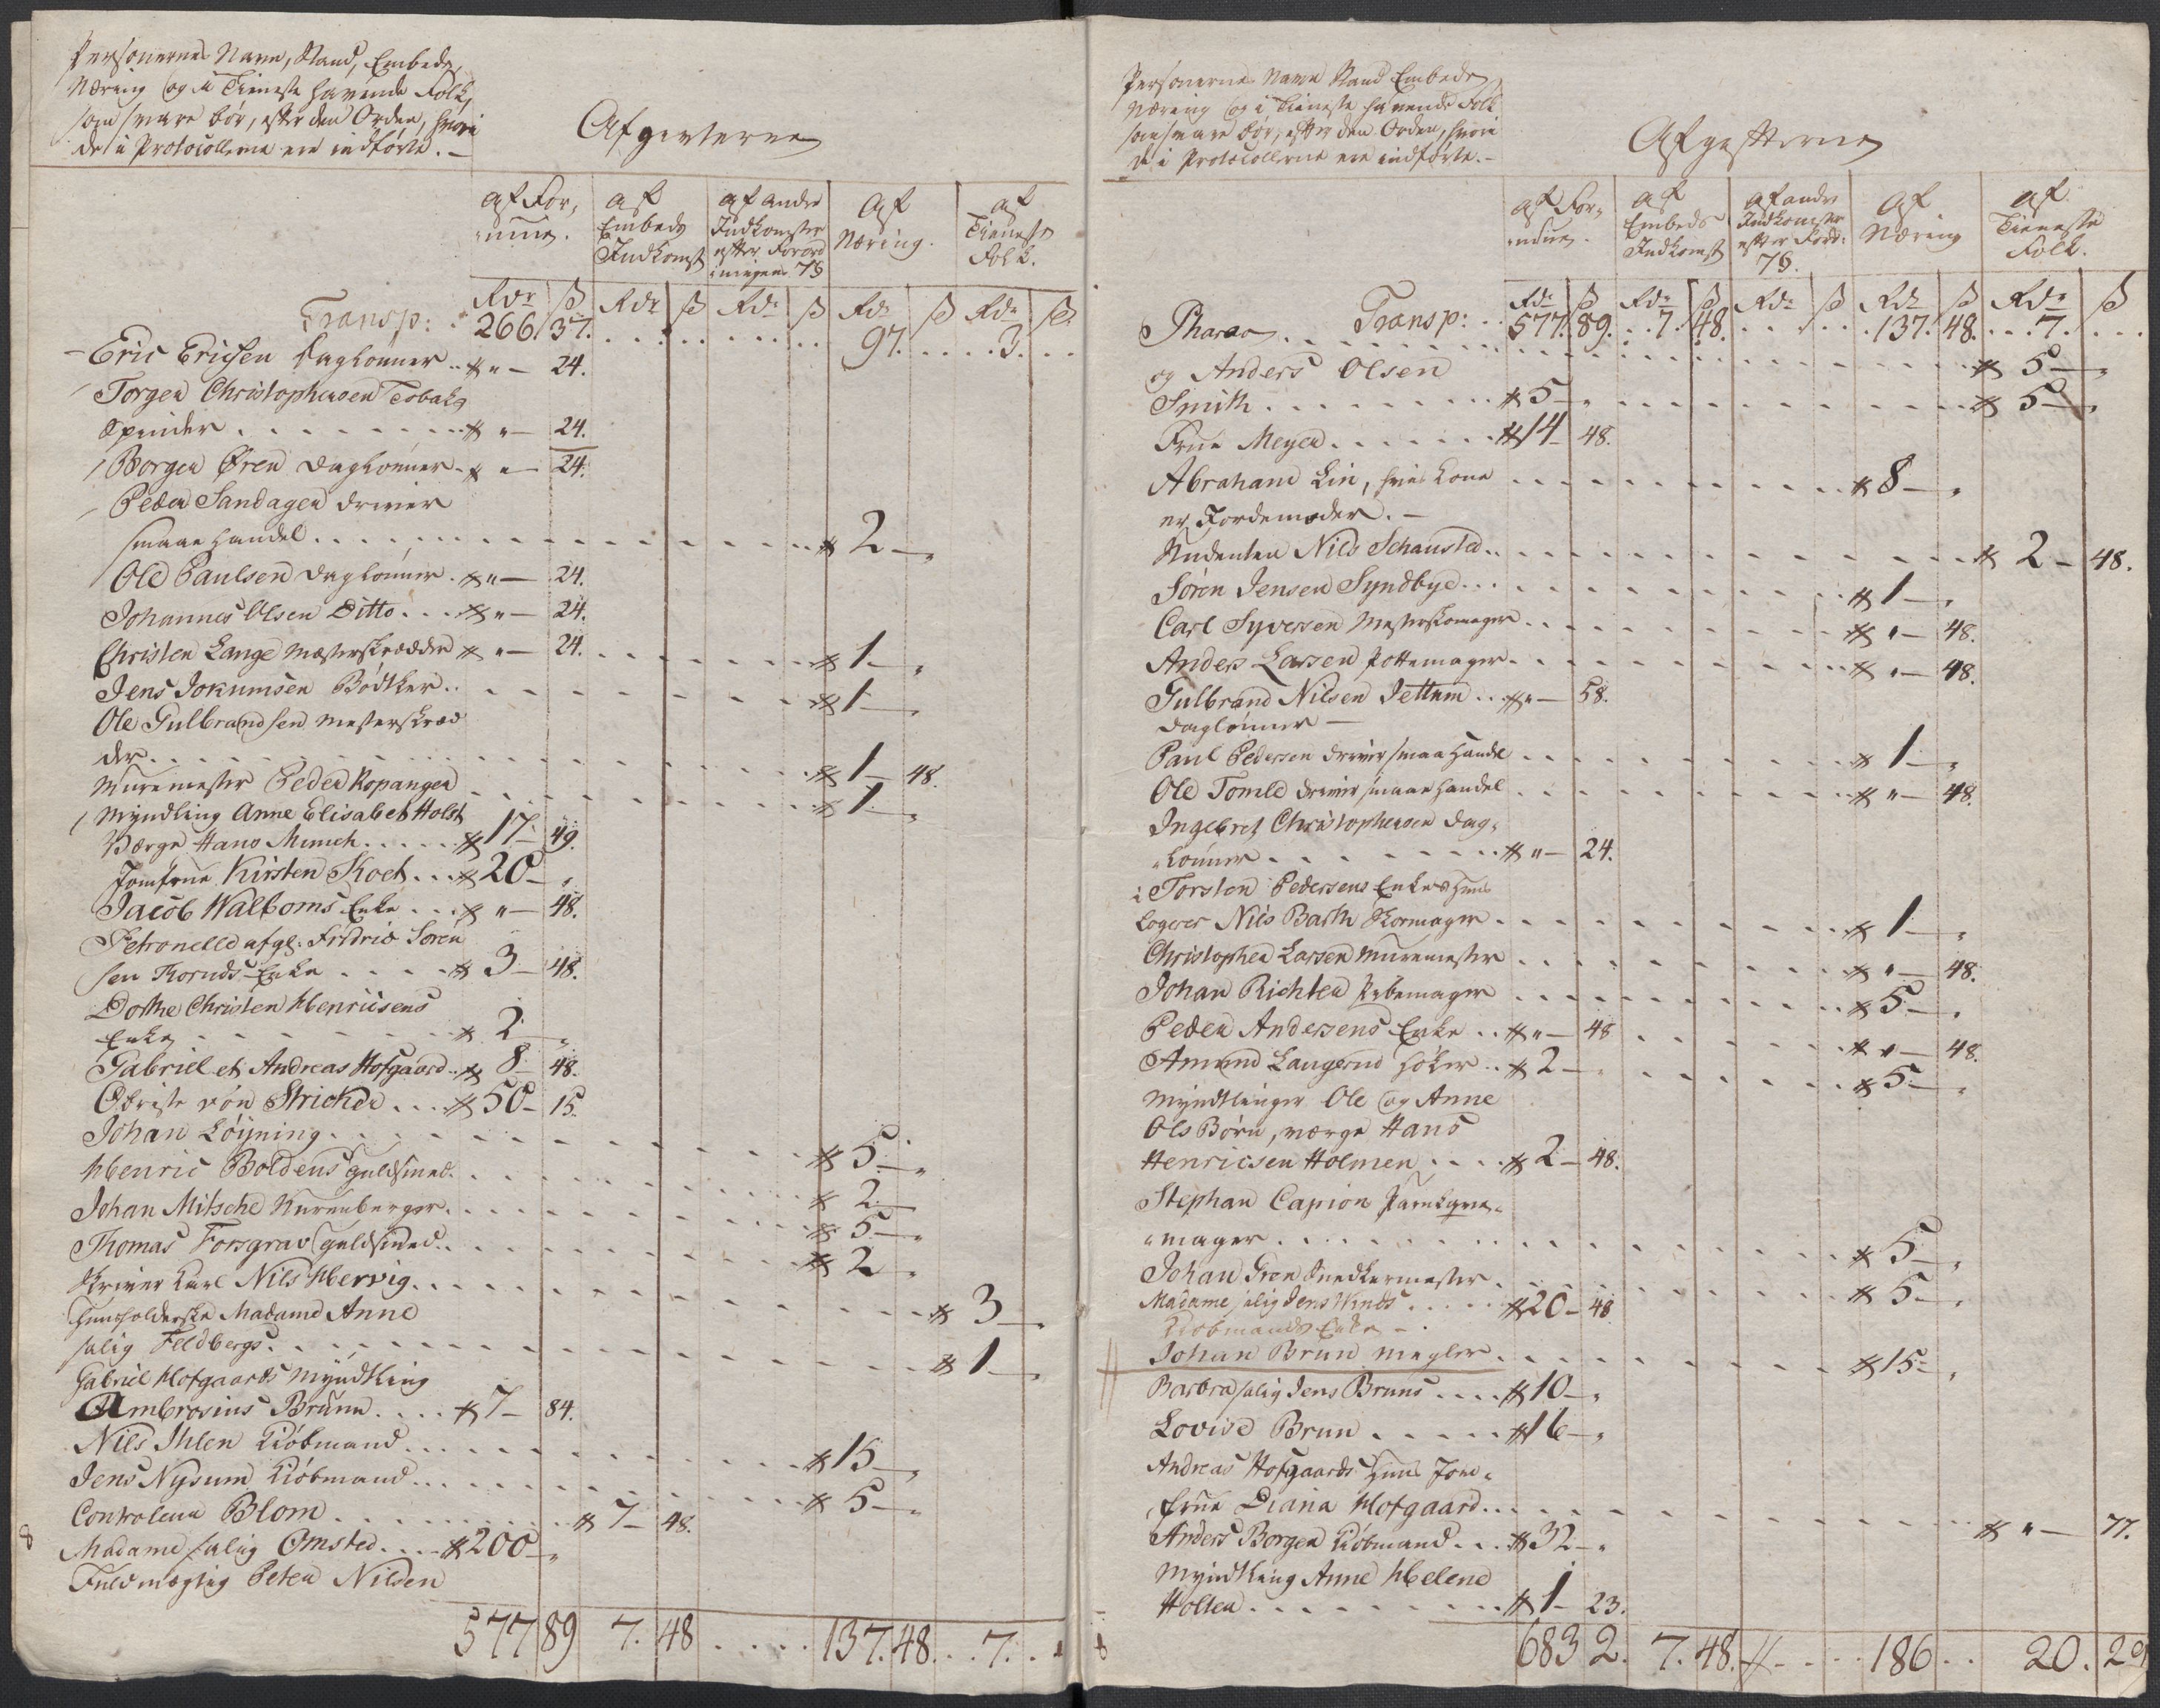 Personernes Navn, Stand, Embede,
Næring og i Tieneste havende Folk,
som svare bør, efter den Orden, hvori
de i Protocollerne ere indførte. -
Afgivterne
af For-
mue.
af
Embeds
Indkomst
af andre
Indkomster
efter Forord
ningens 7 §
Af
Næring.
af
Tieneste
Folk.
Rdr ß Rdr ß Rdr ß Rdr ß Rdr ß
Transp: 266. 37. . . . . 97. . . . 3. . .
Eric Ericsen Daglønner .. " - 24.
Torger Christophersen Tobaks
Spinder . . . . " - 24.
Borger Øren Daglønner - " - 24.
Peder Sandager driver
smaae Handel . . . . 2 - "
Ole Paulsen Daglønner . " - 24.
Johannes Olsen Ditto . . . " - 24.
Christen Lange Mesterskrædder " - 24. . . . 1 - "
Jens Jokumsen Bødtker . . . . 1 - "
Ole Gulbrandsen Mesterskræd
der . . . . 1 - 48.
Muremester Peder Kopanger . . . . 1 - "
Myndtling Anne Elisabet Holst
Værge Hans Munch . . . . 17 - 49.
Jomfrue Kirsten Koch . . . 20 - "
Jacob Walboms Enke . . . " - 48.
Petronelle afgl: Fridric Søren
sen Enke . . . . 3 - 48.
Dorthe Christen Henricsens
Enke . . . . 2 - "
Gabriel et Andreas Hofgaard . . 8 - 48.
Obriste von Stricker . . . 50 - 15.
Johan Løyning . . . . 5 - "
Henric Boldens Guldsmed . . . . 2 -
Johan Mitsche Nurenberger . . . . 5 - "
Thomas Forsgrav Guldsmed . . . . 2 - "
Skriver Karl Nils Hervig . . . . 3 - "
Huusholderske Madame Anne
salig Feldbergs . . . . 1 - "
Gabriel Hofgaards Myndtling
Ambrosius Brunn . . . . 7 - 84.
Nils Ihlen Kiøbmand . . . . 15 - "
Jens Nysum Kiøbmand . . . . 5 - "
Controleur Blom . . . . 7 - 48.
Madame salig Omsted . . . . 200 - "
Fuldmægtig Peter Nilsen
577 89 7. 48 . . . . 137. 48. . . 7. . .
Personernes Navn Stand Embede
Næring og i Tieneste havende Folk
som svare bør, efter den Orden, hvori
de i Protocollerne ere indførte. -
Afgifterne
af For-
mue.
af
Embeds
Indkomst
af andre
Indkomster
efter Ford:
7 §.
Af
Næring
af
Tieneste
Folk.
Rdr ß Rdr ß Rdr ß Rdr ß Rdr ß
Transp: . . 577. 89. . . 7. 48. . . . . 137. 48. . . 7. . .
Pharao . . . . 5 - "
og Anders Olsen
Smith . . . . 5 - " . . . . 5 - "
Frue Meyer . . . . 14 - 48.
Abraham Lie, hvis Kone . . . . 8 - "
er Jordemoder. -
Studenten Nils Schansted . . . . 2 - 48.
Søren Jensen Syndbye . . . . 1 - "
Carl Syversen Mesterskomager . . . . " - 48.
Anders Larsen Pottemager . . . . " - 48.
Gulbrand Nilsen Jettum . . " - 58.
Daglønner -
Paul Pedersen driver smaa Handel . . . . 1 - "
Ole Tomle driver smaae Handel . . . . " - 48.
Ingebret Christophersen Dag-
lønner . . . . " - 24.
i Torsten Pedersens Enkes Huus
logerer Nils Barth Skomager . . . . 1 - "
Christopher Larsen Muremester . . . . " - 48.
Johan Richter Pibemager . . . . 5 - "
Peder Andersens Enke . . " - 48 . . . . " - 48.
Amund Laugerud Høker . . 2 - " . . . . 5 - "
Myndtlinger Ole og Anne
Ols Børn, værge Hans
Henricsen Holmen . . . . 2 - 48.
Stephan Capion
mager . . . . 5 - "
Johan Gren Snedkermester . . . . 5 - "
Madame salig Jens Winds . . . . 20 - 48
Kiøbmands Enke -
Johan Brun Megler . . . . 15 - "
Barbra salig Jens Bruns . . . . 10 - "
Lovise Brun . . . . 16 - "
Andreas Hofgaards Huus Jom-
frue Diana Hofgaard . . . . " - 77.
Anders Borger Kiøbmand . . . 32 - "
Myndtling Anne Helene
Holter . . . . 1 - 23.
683 2. 7. 48. . . . 186 . . 20. 29